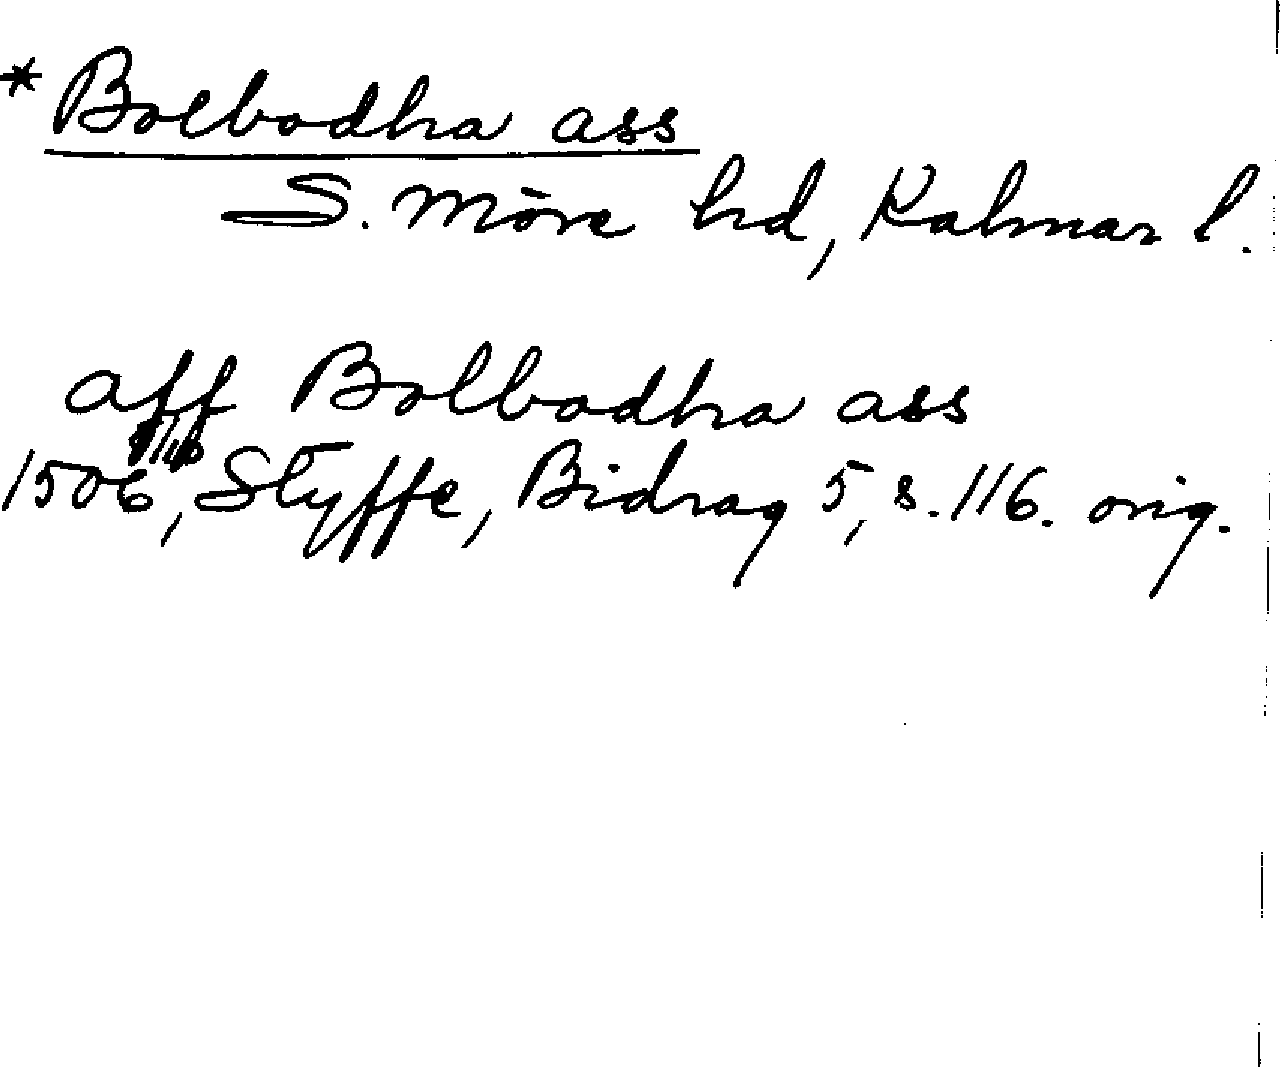 * Bolbodha ass
S. Möre hd, Kalmar l.
aff Bolbodha ass
1506, Styffe, Bidrag 5, s. 116. orig.